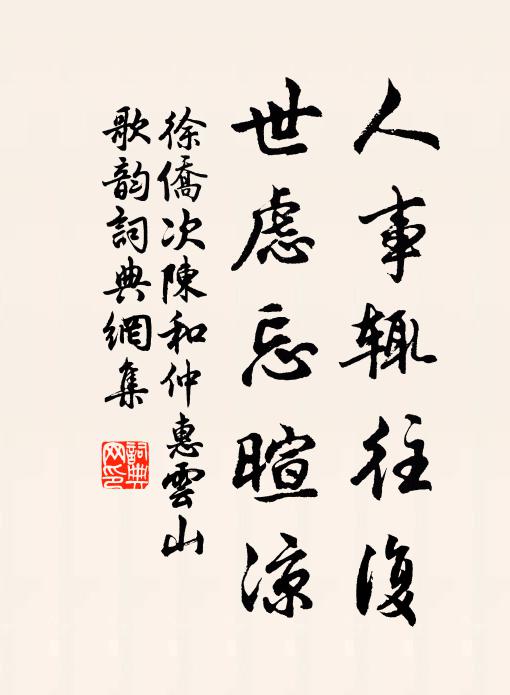 人事辄往復
世慮忘暄凉
徐僑次陳和仲惠雲山
歌韵詞典網集
詞典
网印